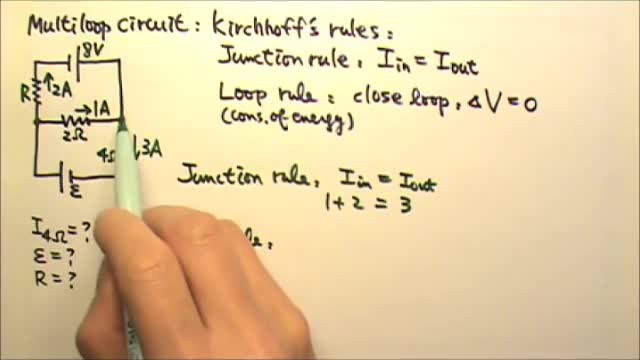 Multiloop circuit: Kirchhoff's rules:
Junction rule, Iin = Iout
Loop rule: close loop, ΔV = 0
(cons. of energy)
8V
R
2A
1A
2Ω
3A
ε
Junction rule, Iin = Iout
1 + 2 = 3
I4Ω = ?
ε = ?
R = ?